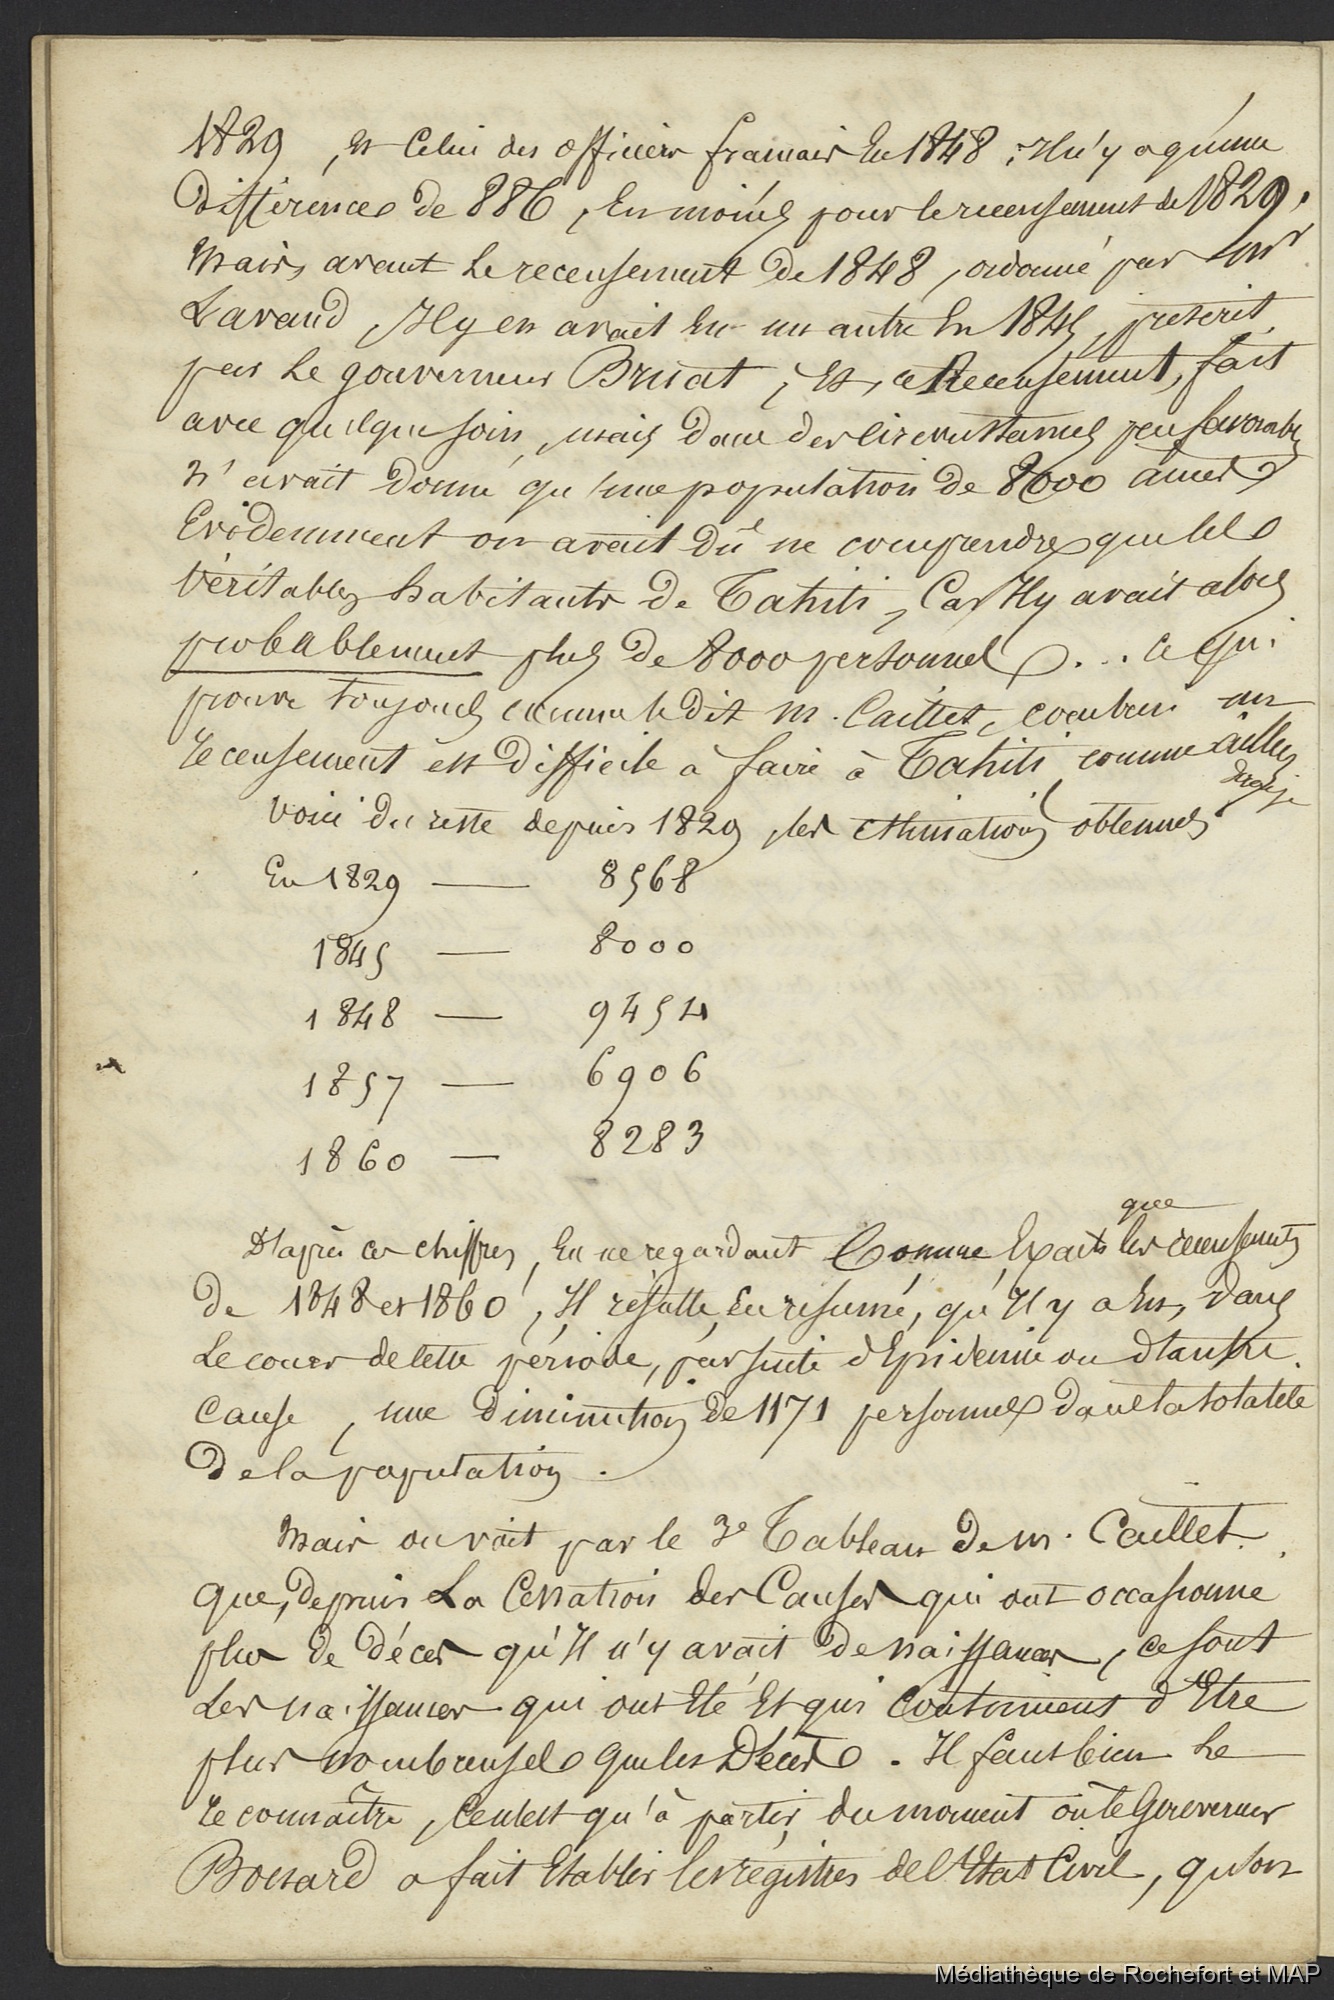 1829, et celui des officiers français en 1848 ; Il n'y a qu'une
différence de 886, en moins pour le recensement de 1829,
Mais, avant le recensement de 1848, ordonné par Mr
Lavaud, Il y en avait eu un autre en 1845, prescrit
par le gouverneur Bruat, et, ce Recensement, fait
avec quelque soin, mais dans des circonstances peu favorables
n'avait donné qu'une population de 8000 âmes
Evidemment on avait dû ne comprendre que les
véritables habitants de Tahiti, Car Il y avait alors
probablement plus de 8000 personnes ... ce qui
prouve toujours comme le dit M. Caillet, combien un
recensement est difficile à faire à Tahiti comme ailleurs
Voici du reste depuis 1829, les estimations obtenues
En 1829 — 8568
1845 — 8000
1848 — 9454
1857 — 6906
1860 — 8283
que
D'après ces chiffres, En ne regardant Comme Exacts les recensements
de 1848 et 1860, Il résulte, en résumé, qu'Il y a eu, dans
le cours de cette période, par suite d'Epidémie ou d'autre
cause, une diminution de 1171 personnes dans la totalité
de la population.
Mais on voit par le 3e Tableau de M. Caillet
que, depuis La Cessation des Causes qui ont occasionné
plus de décès qu'Il n'y avait de naissances, ce sont
les naissances qui ont Eté Et qui continuent d'Etre
plus nombreuses que les Décès. Il faut bien le
reconnaître, ce n'est qu'à partir du moment où le Gouverneur
a fait Etablir les régistres de l'Etat Civil, qu'on
Médiathèque de Rochefort et MAP